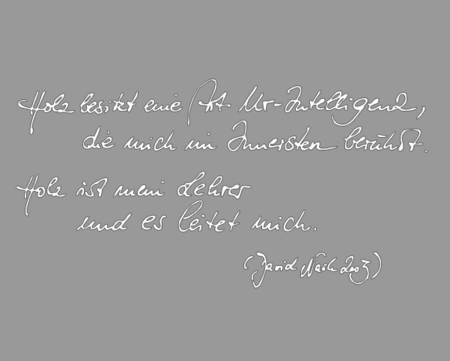 Holz besitzt eine Art Ur-Intelligenz,
die mich im Innersten berührt.
Holz ist mein Lehrer
und es leitet mich.
(David Nash